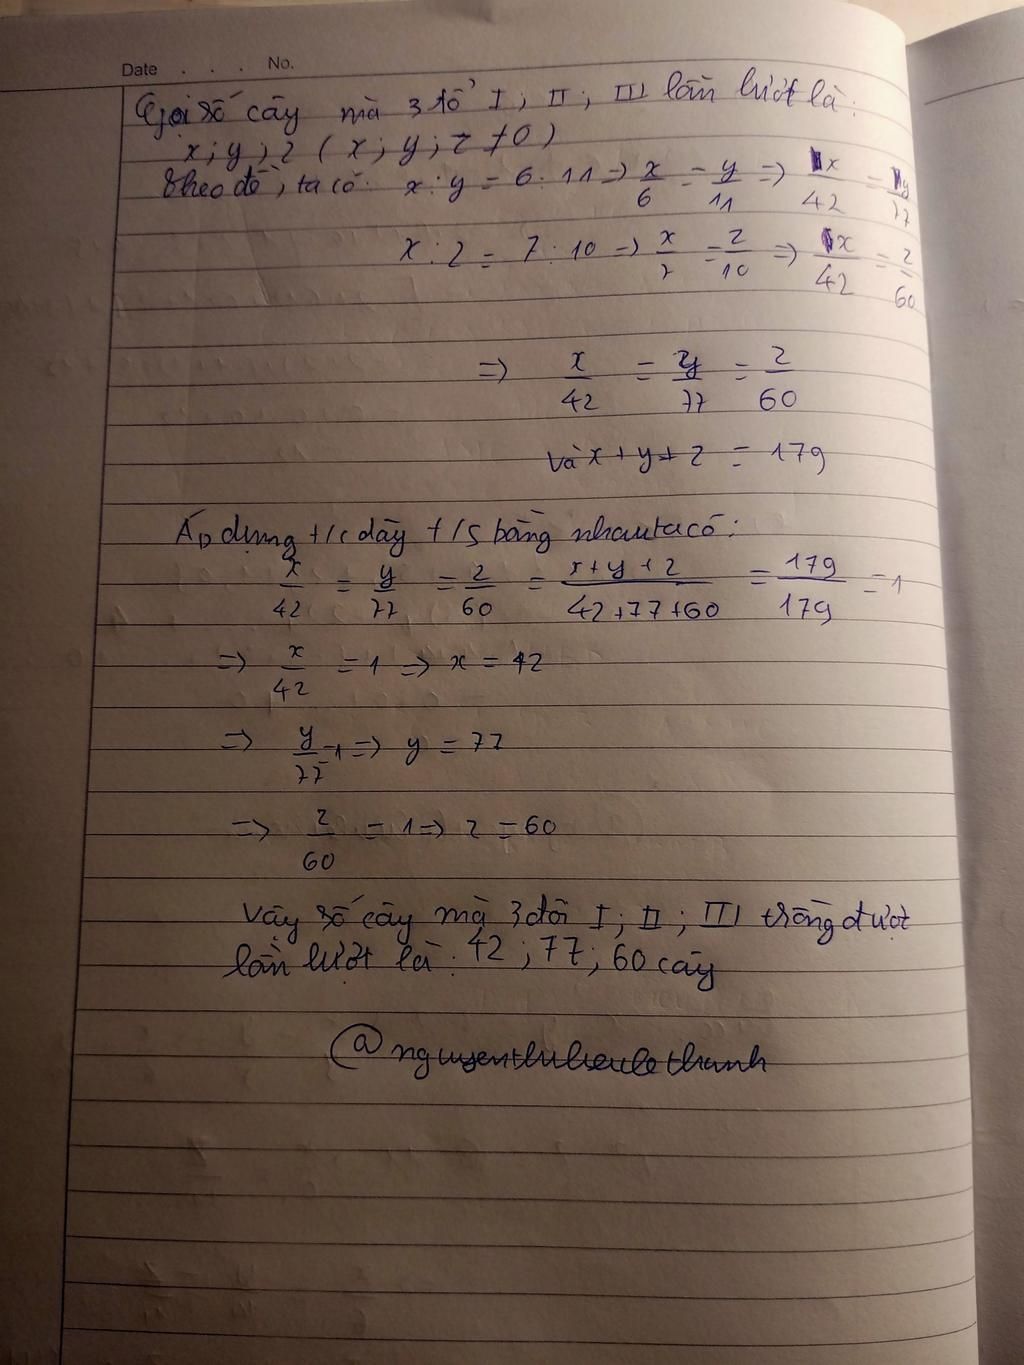 Date . . . No.
Gọi số cây mà 3 tổ I ; II ; III lần lượt là :
x ; y ; z ( x ; y ; z ≠ 0 )
Theo đề, ta có: x : y = 6 : 11 => x/6 = y/11 => x/42 = y/77
x : z = 7 : 10 => x/7 = z/10 => x/42 = z/60
=> x/42 = y/77 = z/60
Và x + y + z = 179
Áp dụng t/c dãy t/s bằng nhau ta có :
x/42 = y/77 = z/60 = x + y + z/42 + 77 + 60 = 179/179 = 1
=> x/42 = 1 => x = 42
=> y/77 = 1 => y = 77
=> z/60 = 1 => z = 60
Vậy số cây mà 3 đội I ; II ; III trồng được
lần lượt là : 42 ; 77 ; 60 cây